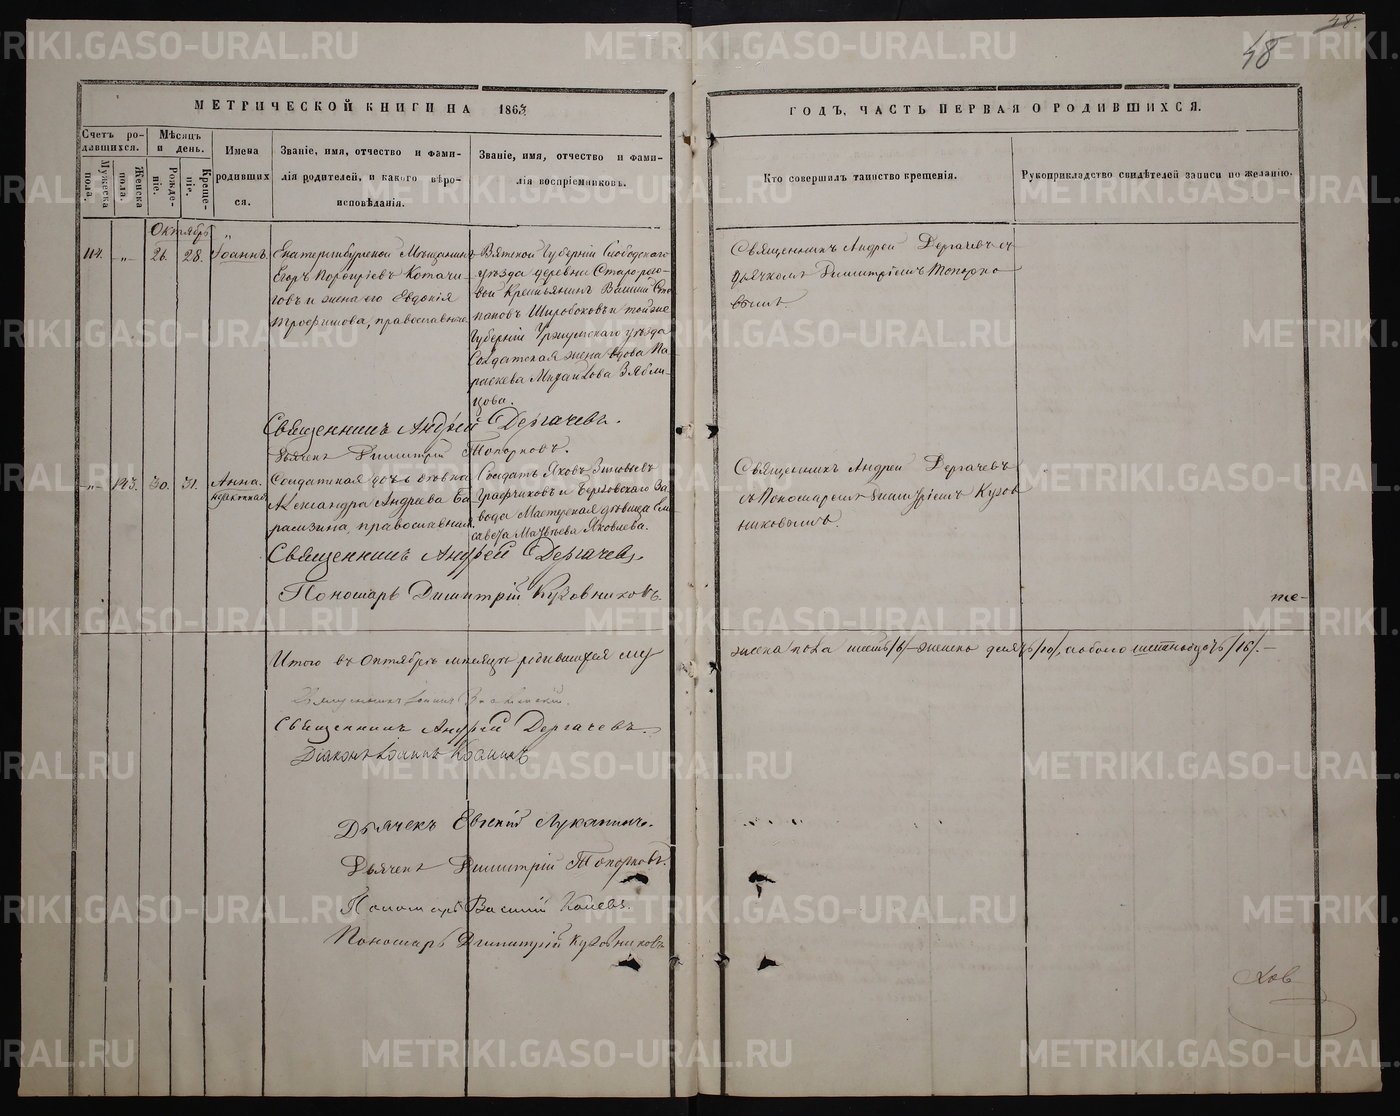 48
МЕТРИЧЕСКОЙ КНИГИ НА 1863
ГОДЪ, ЧАСТЬ ПЕРВАЯ О РОДИВШИХСЯ.
Счетъ ро-
дившихся.
Мужеска
пола.
Женска
пола.
Мѣсяцъ
и день.
Рожде-
ніе.
Креще-
ніе.
Имена
родивших
ся.
Званіе, имя, отчество и фами-
лія родителей, и какого вѣро-
исповѣданія.
Званіе, имя, отчество и фами-
лія воспріемниковъ.
Кто совершилъ таинство крещенія.
Рукоприкладство свидѣтелей записи по желанію.
Октябрь
114. -„- 26. 28. Іоаннъ.
Екатеринбургской Мѣщанинъ
Егоръ Порфиріевъ Котачи-
говъ и жена его Евдокія
Трофимова, православные
Вятской Губерніи Слободскаго
уѣзда деревни
Крестьянинъ Василій Сте
пановъ Широбоковъ и тойже
Губерніи Уржумскаго уѣзда
Солдатская жена вдова Па
раскева Михайлова Зябли-
цова.
Священникъ Андрей Дергачевъ съ
Дьячкомъ Димитріемъ Топорко
вымъ
Священникъ Андрей Дергачевъ.
Дьячекъ Димитрій Топорковъ.
-„- 123. 30. 31. Анна.
незаконная
Солдатская дочь дѣвка
Александра Андреева Ба
рамзина, православная.
Солдатъ Яковъ Зиновьевъ
Графчиковъ и Березовскаго За
вода Мастерская дѣвица Ели
савета Матвѣева Яковлева.
Священникъ Андрей Дергачевъ
съ Пономаремъ Димитріемъ Кузов
никовымъ.
Священникъ Андрей Дергачевъ,
Пономарь Димитрій Кузовниковъ.
те-
Итого въ Октябрѣ мѣсяцѣ родившихся му
жеска пола шесть /6/ женска десять /10/, а обоего шестнадцать /16/. —
Священникъ Іоаннъ
Священникъ Андрей Дергачевъ.
Діаконъ Іоаннъ
Дьячекъ Евгеній Лукапинъ.
Дьячекъ Димитрій Топорковъ.
Пономарь Василій Коневъ.
Пономарь Димитрій Кузовниковъ
ков
METRIKI.GASO-URAL.RU